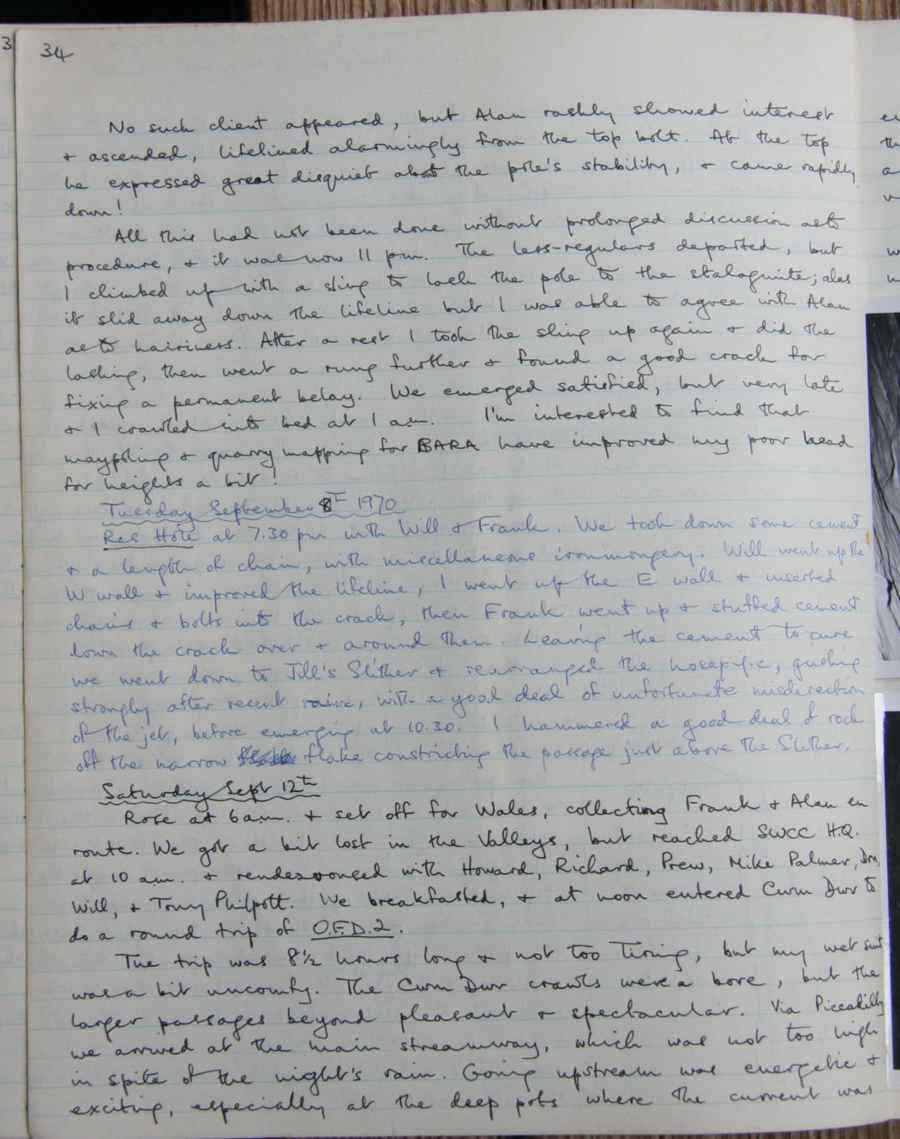 34
No such client appeared, but Alan rashly showed interest
+ ascended, lifelined alarmingly from the top bolt. At the top
he expressed great disquiet about the pole's stability, + came rapidly
down!
All this had not been done without prolonged discussion as to
procedure, + it was now 11 pm. The less-regulars departed, but
I climbed up with a sling to lash the pole to the stalagmite; alas
it slid away down the lifeline but I was able to agree with Alan
as to hairiness. After a rest I took the sling up again + did the
lashing, then went a rung further + found a good crack for
fixing a permanent belay. We emerged satisfied, but very late
+ I crawled into bed at 1 am. I'm interested to find that
maypoling + quarry mapping for BARA have improved my poor head
for heights a bit!
Tuesday September 8th 1970
Res Hole at 7.30 pm with Will + Frank. We took down some cement
+ a length of chain, with miscellaneous ironmongery. Will went up the
W wall + improved the lifeline, I went up the E wall + inserted
chains + bolts into the crack, then Frank went up + stuffed cement
down the crack over + around them. Leaving the cement to cure
we went down to Jill's Slither + rearranged the hosepipe, gushing
strongly after recent rains, with a good deal of unfortunate misdirection
of the jet, before emerging at 10.30. I hammered a good deal of rock
off the narrow flake constricting the passage just above the Slither.
Saturday Sept 12th
Rose at 6 am. + set off for Wales, collecting Frank + Alan en
route. We got a bit lost in the Valleys, but reached SWCC HQ.
at 10 a.m. + rendezvoused with Howard, Richard, Prew, Mike Palmer,
Will, + Tony Philpott. We breakfasted, + at noon entered Cwm Dwr to
do a round trip of O.F.D.2.
The trip was 8½ hours long + not too tiring, but my wet suit
was a bit uncomfy. The Cwm Dwr crawls were a bore, but the
larger passages beyond pleasant + spectacular. Via Piccadilly
we arrived at the main streamway, which was not too high
in spite of the night's rain. Going upstream was energetic +
exciting, especially at the deep pots where the current was